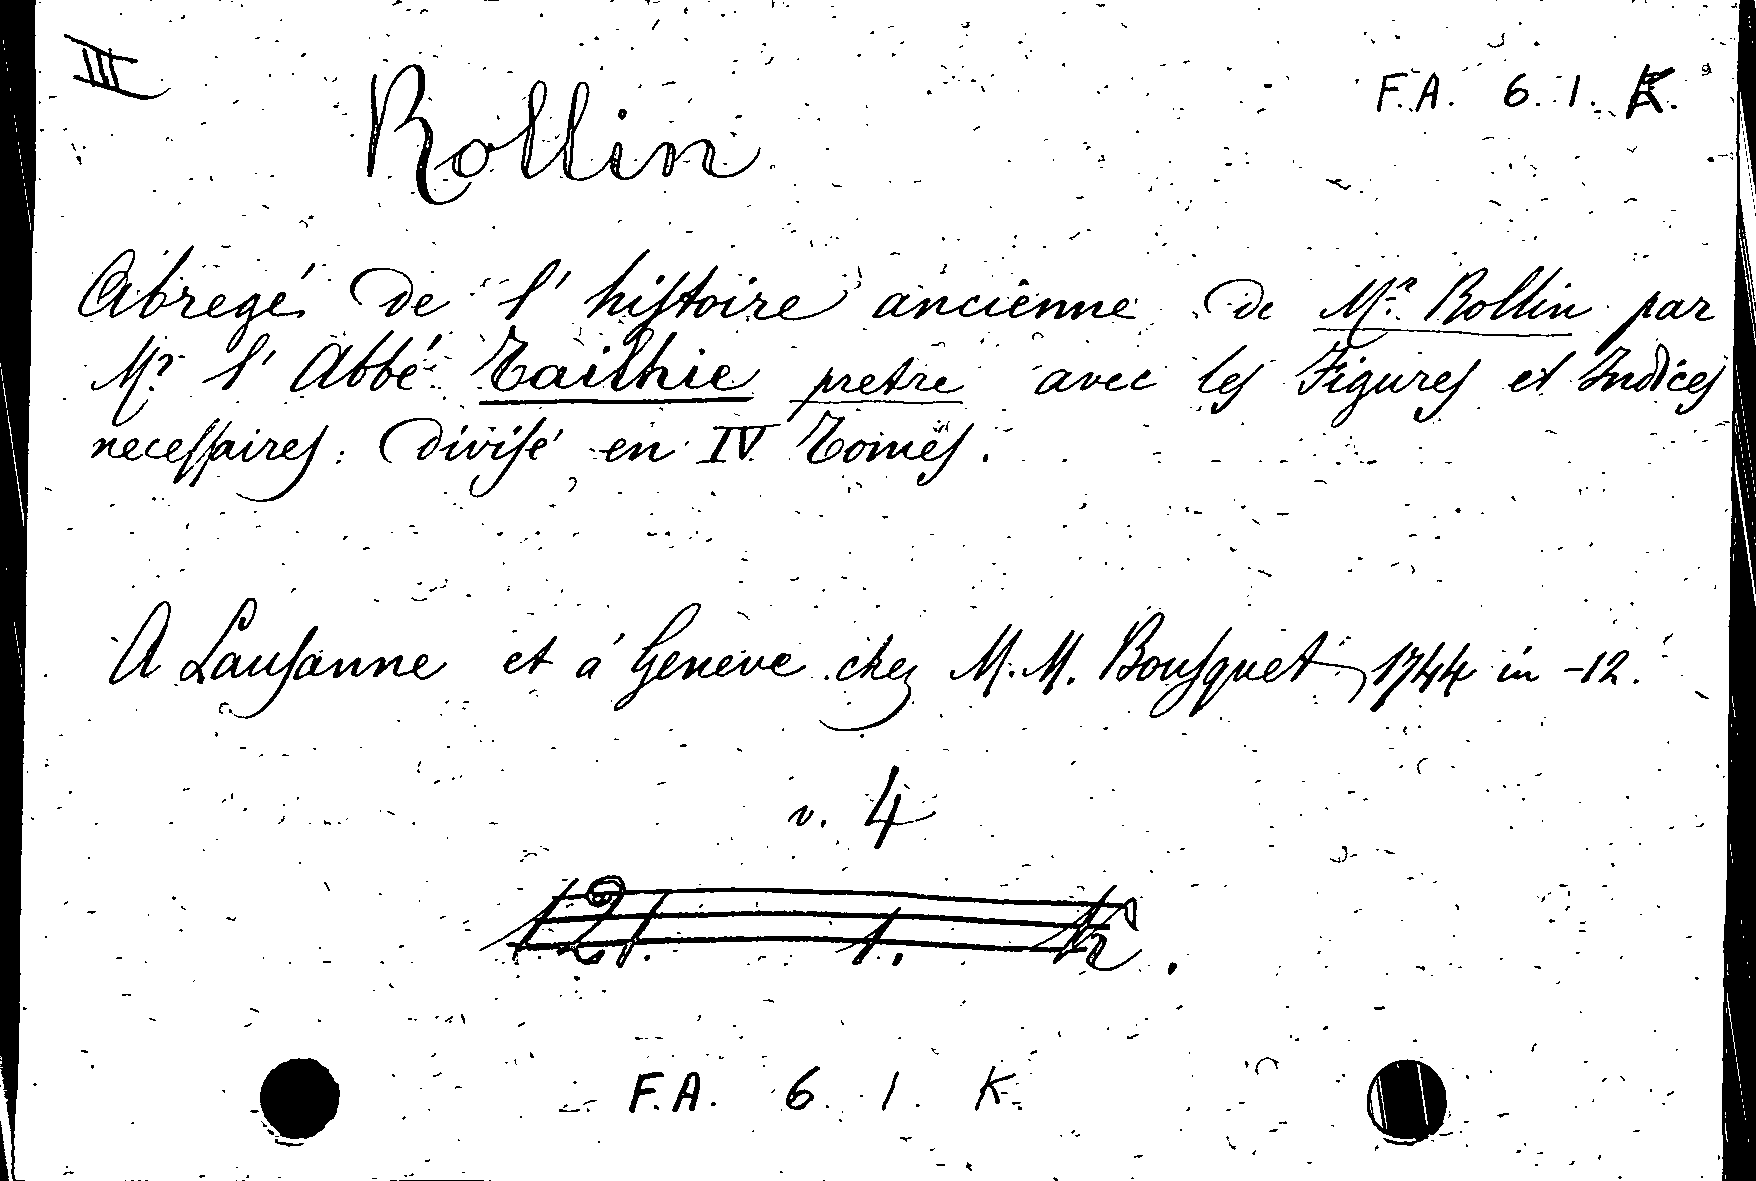 III
F.A. 6. 1. K.
Rollin
Abregé de l' hiſtoire ancienne de Mr. Rollin par
Mr. l' Abbé Tailhie pretre avec les Figures et Indices
neceſſaires: diviſé en IV Tomes.
A Lauſanne et à Geneve chez M. M. Bouſquet, 1744 in -12.
v. 4
121. 1. K.
F.A. 6. 1. K.